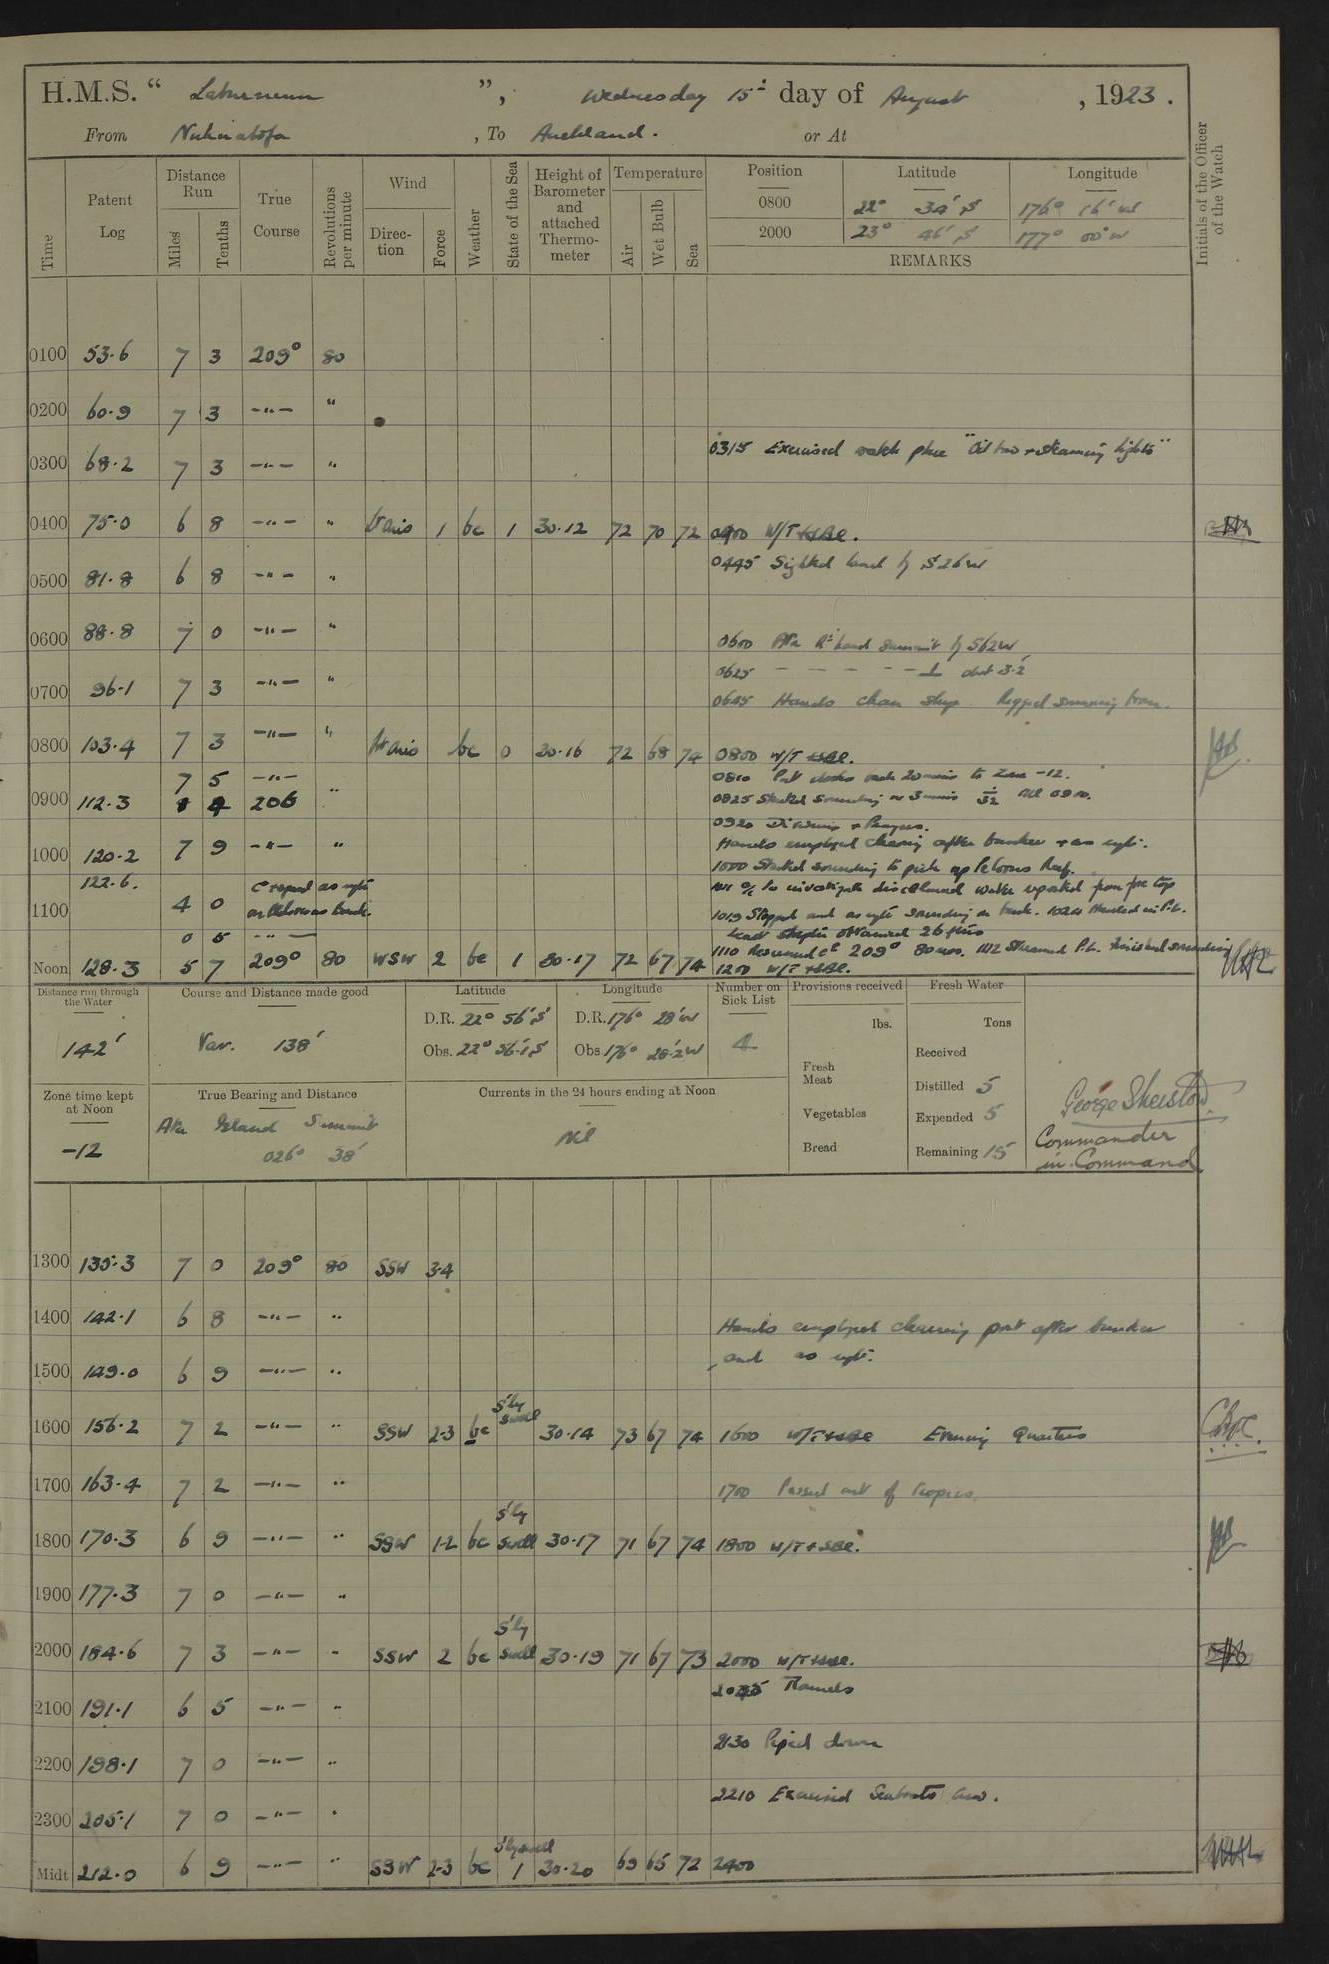 H.M.S. “ Laburnum ”, Wednesday 15th day of August , 1923.
From Nukualofa , To Auckland. or At
Time
Patent Log
Distance Run
Miles
Tenths
True Course
Revolutions per minute
Wind
Direction
Force
Weather
State of the Sea
Height of Barometer and attached Thermometer
Temperature
Air
Wet Bulb
Sea
Position Latitude Longitude
0800 22° 34' S 176° 16' W
2000 23° 46' S 177° 00' W
REMARKS
Initials of the Officer of the Watch
0100 53.6 7 3 209° 80
0200 60.9 7 3 -"- "
0315 Exercised watch place "Oil two steaming lights"
0300 68.2 7 3 -"- "
0400 75.0 6 8 -"- " Varis 1 bc 1 30.12 72 70 72 0400 W/T
0445 Sighted land S 26 W
0500 81.8 6 8 -"- "
0600 88.8 7 0 -"- "
0600 Ata Rt hand summit S62W
0625 - - - - - ⊥ dist 3.2'
0700 96.1 7 3 -"- "
0645 Hands clean ship. Rigged sounding boom.
0800 103.4 7 3 -"- " Varis bc 0 30.16 72 68 74 0800 W/T
7 5 -"-
0810 Put clocks back 20 mins to Zone -12.
0900 112.3 8 4 206 "
0825 Started sounding
0920 Divisions + Prayers.
Hands employed clearing after bunker + as reqte.
1000 120.2 7 9 -"- "
1000 Started sounding to pick up Pelorus Reef.
122.6.
Cs reqd as reqte on Pelorus bank.
to investigate discoloured water reported from fore top
1100 4 0
1019 Stopped and as reqte sounding on bank. 1024 Hauled in P.L.
0 5 -"-
Least depth obtained 26 fms
1110 Resumed Co 209° 80 revs. 1112 Streamed P.L. Finished sounding
Noon 128.3 5 7 209° 80 WSW 2 bc 1 30.17 72 67 74 1200 W/T
Distance run through the Water
142'
Course and Distance made good
Var. 138'
Latitude
D.R. 22° 56' S
Obs. 22° 56.1' S
Longitude
D.R. 176° 28' W
Obs 176° 28.2 W
Number on Sick List
4
Provisions received
lbs.
Fresh Meat
Vegetables
Bread
Fresh Water
Tons
Received
Distilled 5
Expended 5
Remaining 15
George Sherston
Commander
in Command
Zone time kept at Noon
-12
True Bearing and Distance
Ata Island Summit
026° 38'
Currents in the 24 hours ending at Noon
Nil
1300 135.3 7 0 209° 80 SSW 3-4
1400 142.1 6 8 -"- "
Hands employed clearing port after bunker
and as reqte.
1500 149.0 6 9 -"- "
1600 156.2 7 2 -"- " SSW 2-3 bc S'ly swell 30.14 73 67 74 1600 W/T Evening Quarters
1700 163.4 7 2 -"- "
1700 Passed out of Tropics.
1800 170.3 6 9 -"- " SSW 1-2 bc S'ly swell 30.17 71 67 74 1800 W/T
1900 177.3 7 0 -"- "
2000 184.6 7 3 -"- " SSW 2 bc S'ly swell 30.19 71 67 73 2000 W/T
Rounds
2100 191.1 6 5 -"- "
2130 Piped down
2200 198.1 7 0 -"- "
2210 Exercised Seaboats crew.
2300 205.1 7 0 -"- "
Midt 212.0 6 9 -"- " SSW 2-3 bc S'ly swell 1 30.20 69 65 72 2400